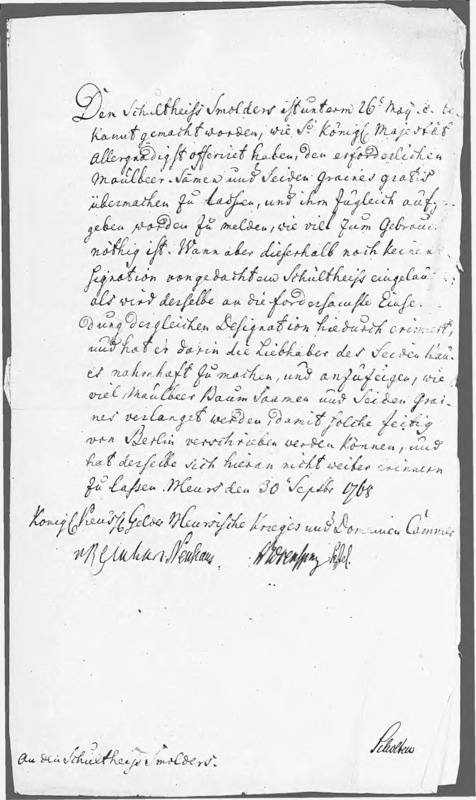 Den Schultheiss Smolders ist unterm 26t May. a. c. be
kannt gemacht worden, wie Se Königl. Majestät
Allergnädigst offeriret haben, den erforderlichen
Maulbeer-Saamen und Seiden Graines gratis
übermachen zu lassen, und ihm zugleich aufge
geben worden zu melden, wie viel zum Gebrauch
nöthig ist. Wann aber dieserhalb noch keine
signation von gedachtem Schultheiss eingelau
als wird derselbe an die fordersamste Einse
dung dergleichen Designation hiedurch erinnert,
und hat er darin die Liebhaber des Seiden Bau
es nahmhaft zu machen, und anzuzeigen, wie
viel Maulbeer Baum Saamen und Seiden Grai
nes verlanget werden, damit solche zeitig
von Berlin verschrieben werden können, und
hat derselbe sich hieran nicht weiter erinnern
zu lassen. Meurs den 30t Septbr 1765
Königl. Preuss. Gelder Meursische Krieges und Domainen Cammer
Neuhaus
an den Schultheiss Smolders.
Scholten